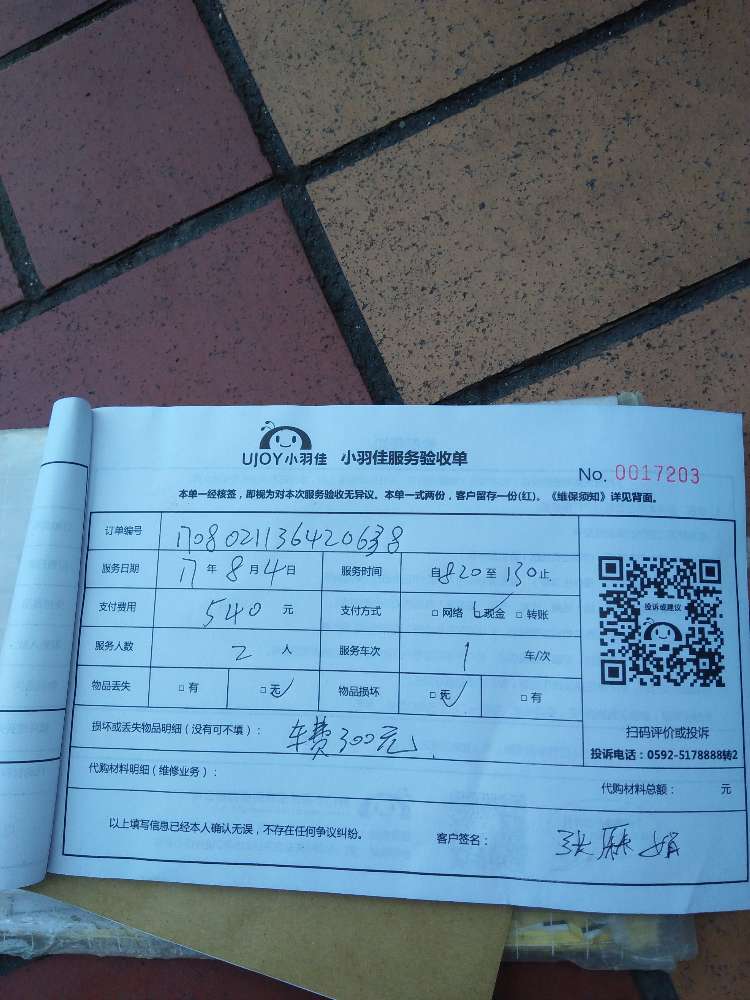 UJOY小羽佳 小羽佳服务验收单
No. 0017203
本单一经核签，即视为对本次服务验收无异议。本单一式两份，客户留存一份(红)。《维保须知》详见背面。
订单编号 1708021136420638
服务日期 17 年 8 月 4 日 服务时间 自 820 至 130 止.
支付费用 540 元 支付方式 □ 网络 □ 现金 □ 转账
服务人数 2 人 服务车次 1 车/次
物品丢失 □ 有 □ 无 物品损坏 □ 无 □ 有
投诉或建议
扫码评价或投诉
投诉电话：0592-5178888转2
损坏或丢失物品明细（没有可不填）： 车费300元
代购材料明细（维修业务）： 代购材料总额： 元
以上填写信息已经本人确认无误，不存在任何争议纠纷。 客户签名： 张